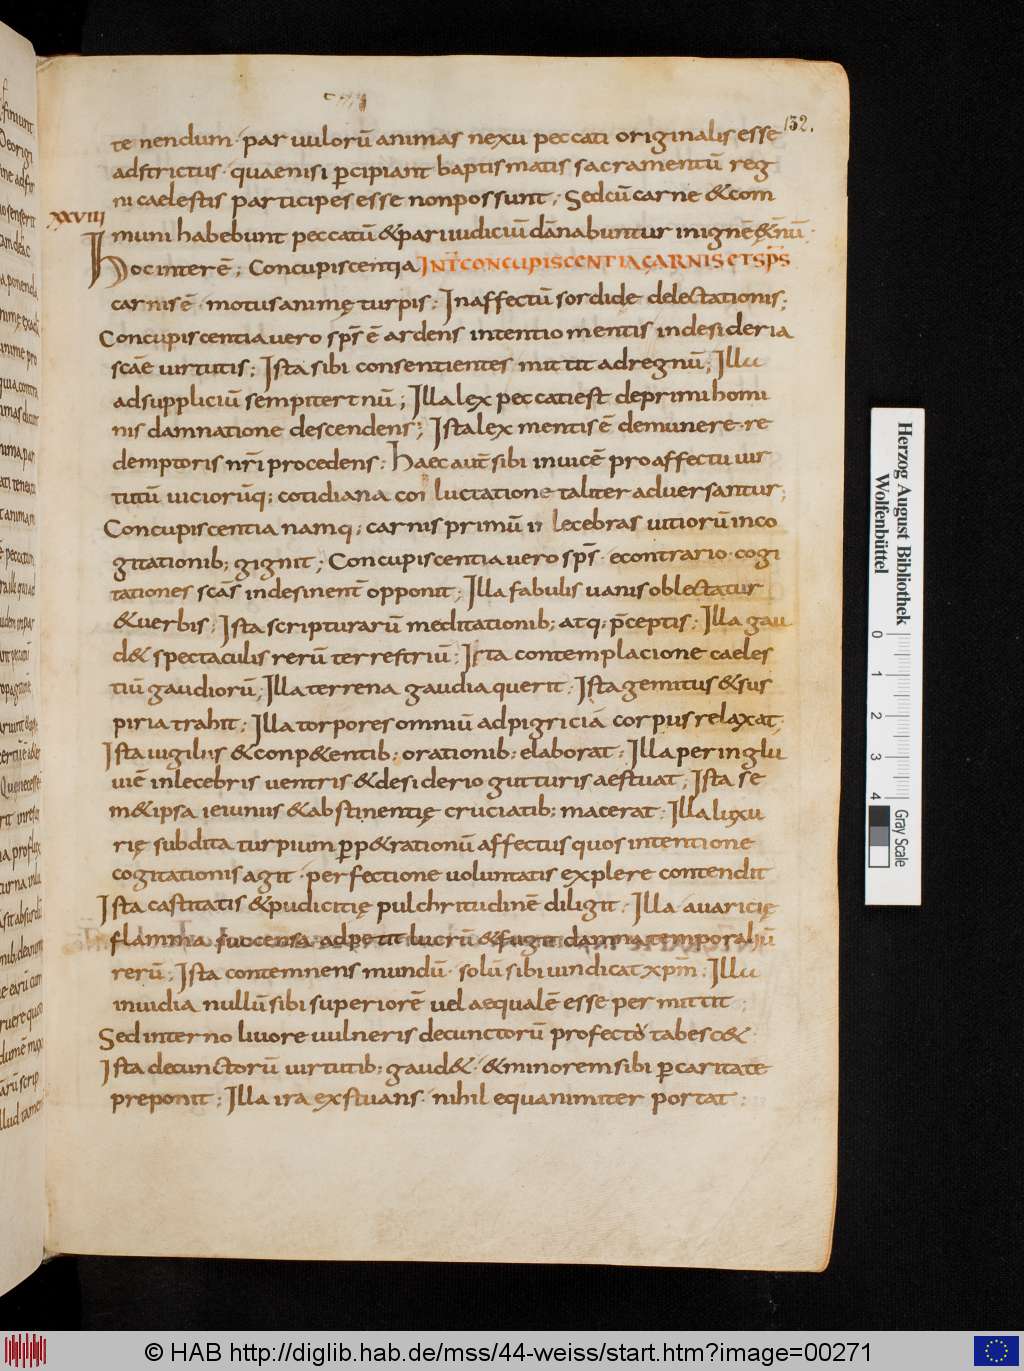 132.
te nendum · par uulorū animas nexu peccati originalis esse
adstrictus · quaenisi p̄cipiant baptismatis sacramentū reg
ni caelestis participes esse nonpossunt ; Sedcū carne & com
XXVIII
muni habebunt peccatū & pari iudiciū dānabuntur in ignē & n̄ū ·
Hoc inter ē ; Concupiscentia INT̄ CONCUPISCENTIA CARNIS ET SP̄S
carnis ē · motus animę turpis ; In affectū sordidę delectationis ;
Concupiscentia uero sp̄s ē ardens intentio mentis in desideria
scāe uirtutis ; Ista sibi consentientes mittit ad regnū ; Illa
ad suppliciū sempitertnū ; Illa lex peccati est de primi homi
nis damnatione descendens ; Ista lex mentis ē de munere re
demptoris nr̄i procedens ; Haec aut̄ sibi inuicē pro affectu uir
tutū uiciorūq; cotidiana con luctatione taliter aduersantur ;
Concupiscentia namq; carnis primū in lecebras uitiorū in co
gitationib; gignit ; Concupiscentia uero sp̄s · econtrario · cogi
tationes scās indesinent̄ opponit ; Illa fabulis uanis oblectatur
& uerbis ; Ista scripturarū meditationib; atq; p̄ceptis ; Illa gau
d& spectaculis rerū terrestriū ; Ista contemplacione caeles
tiū gaudiorū ; Illa terrena gaudia querit ; Ista gemitus & sus
piria trahit ; Illa torpores omniū ad pigriciā corpus relaxat ;
Ista uigiliis & conp&entib; orationib; elaborat ; Illa per inglu
uiē inlecebris uentris & desiderio gutturis aestuat ; Ista se
m&ipsa ieiuniis & abstinentię cruciatib; macerat ; Illa luxu
rię subdita turpium p̄p&rationū affectus quos intentione
cogitationis agit · perfectione uoluntatis explere contendit
Ista castitatis & pudicitię pulchritudinē diligit ; Illa auaricię
flamma succensa adpetit lucrū & fugit damna temporaliū
rerū ; Ista contemnens mundū · solū sibi uindicat xp̄m ; Illa
inuidia nullū sibi superiorē uel aequalē esse permittit ;
Sed interno liuore uulneris de cunctorū profectū tabesc& ·
Ista de cunctorū uirtutib; gaud& · & minorem sibi p̄ caritate
preponit ; Illa ira exstuans · nihil equanimiter portat ;
Herzog August Bibliothek
Wolfenbüttel
0 1 2 3 4
Gray Scale
© HAB http://diglib.hab.de/mss/44-weiss/start.htm?image=00271